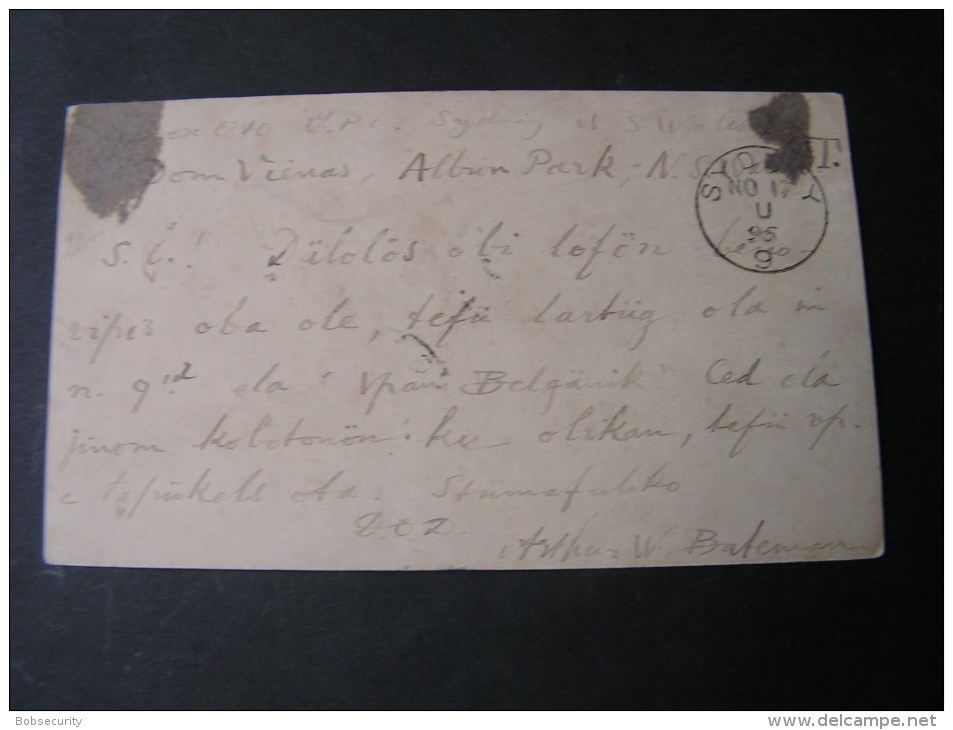 Box 810 G.P.O. Sydney N S Wales
Dom Vienas, Albion Park, N.S.
SYDNEY
NO 17
U
95
9
T.
"S. l.! Dülolös obi lofön
vipis oba ole, tefü lartüg ola in
n. 9'id ela "Vpan Belgänik" Ced ola
jinom kolotonön: ke olikan, tefü vp.
e tapükels ota. Stümafuliko
D O D.
Arthur W. Bateman
Bobsecurity
www.delcampe.net